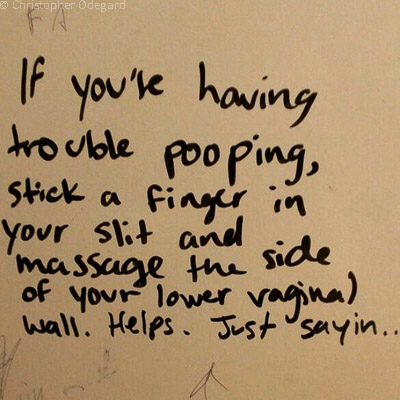 © Christopher Odegard
F A
If you're having
trouble pooping,
stick a finger in
your slit and
massage the side
of your lower vaginal
wall. Helps. Just sayin..